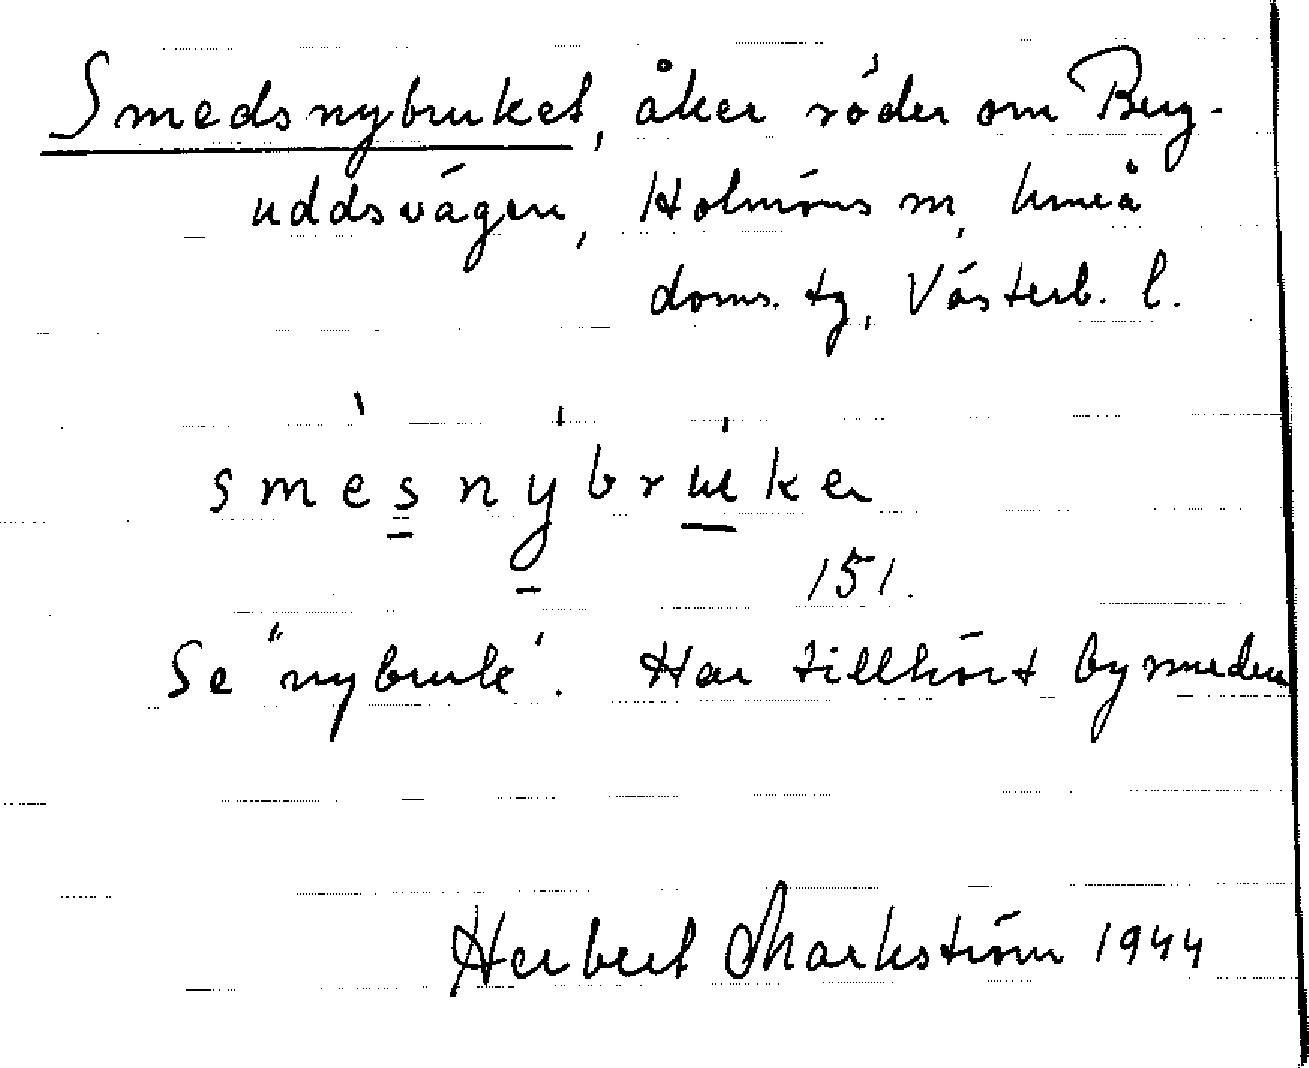 Smedsnybruket, åker söder om Berg-
uddsvägen, Holmöns sn, Umeå
doms. tg, Västerb. l.
smèsnýbrúker
151.
Se "nybruk". Har tillhört bysmeden
Herbert Markström 1944